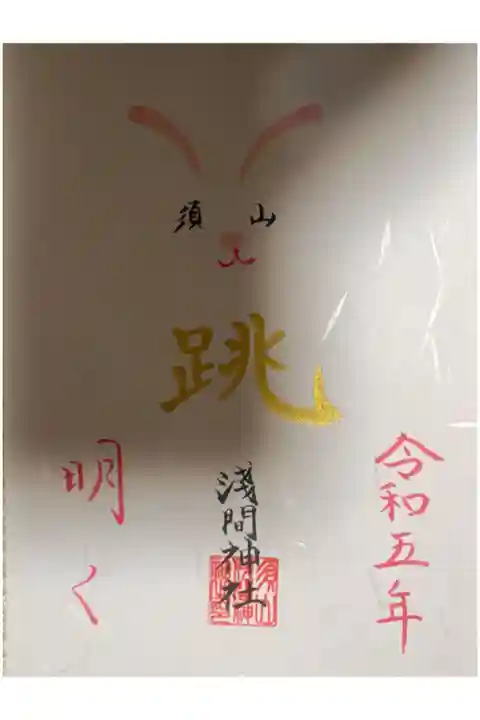 令和五年
須山
跳
淺間神社
明く